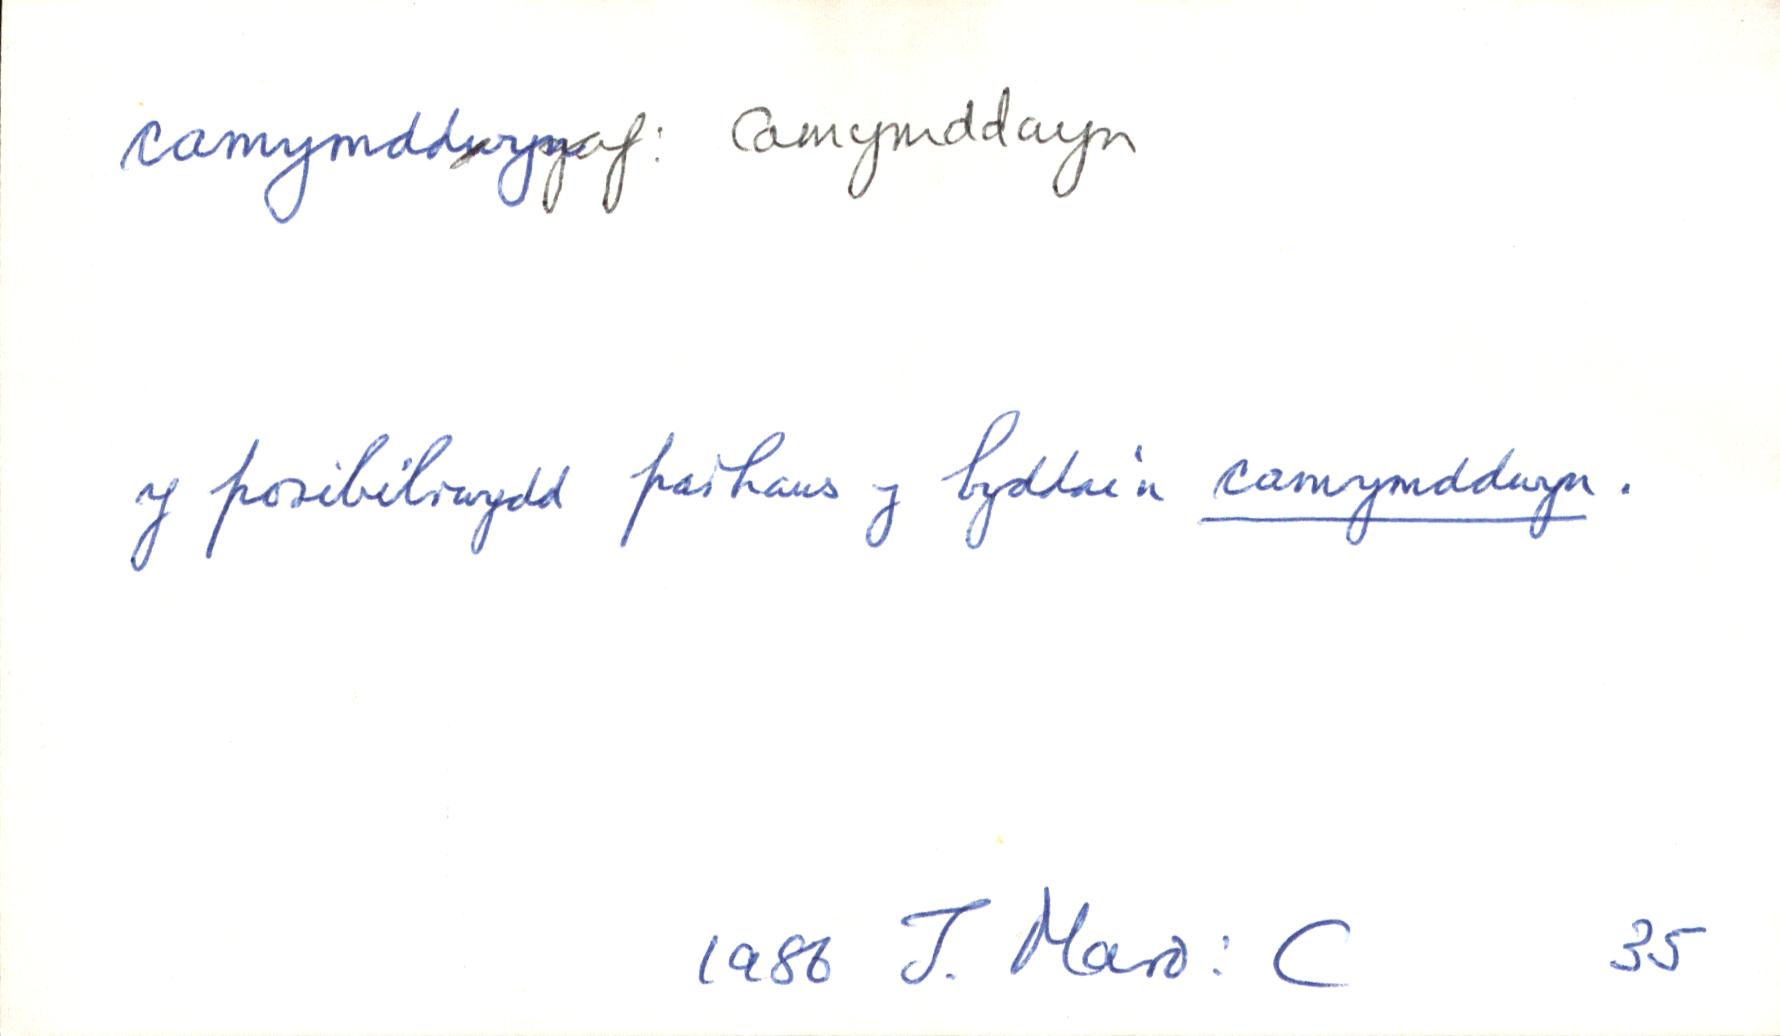 camymddygaf: camymddwyn
y posibilrwydd parhaus y byddai'n camymddwyn.
1986 J. Maro: C 35